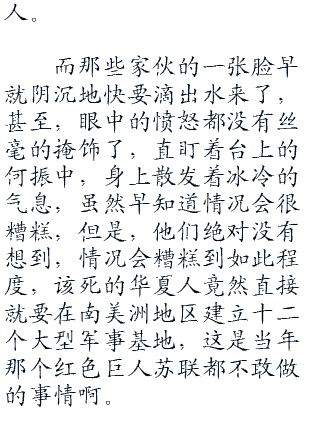 人。
而那些家伙的一张脸早
就阴沉地快要滴出水来了，
甚至，眼中的愤怒都没有丝
毫的掩饰了，直盯着台上的
何振中，身上散发着冰冷的
气息，虽然早知道情况会很
糟糕，但是，他们绝对没有
想到，情况会糟糕到如此程
度，该死的华夏人竟然直接
就要在南美洲地区建立十二
个大型军事基地，这是当年
那个红色巨人苏联都不敢做
的事情啊。